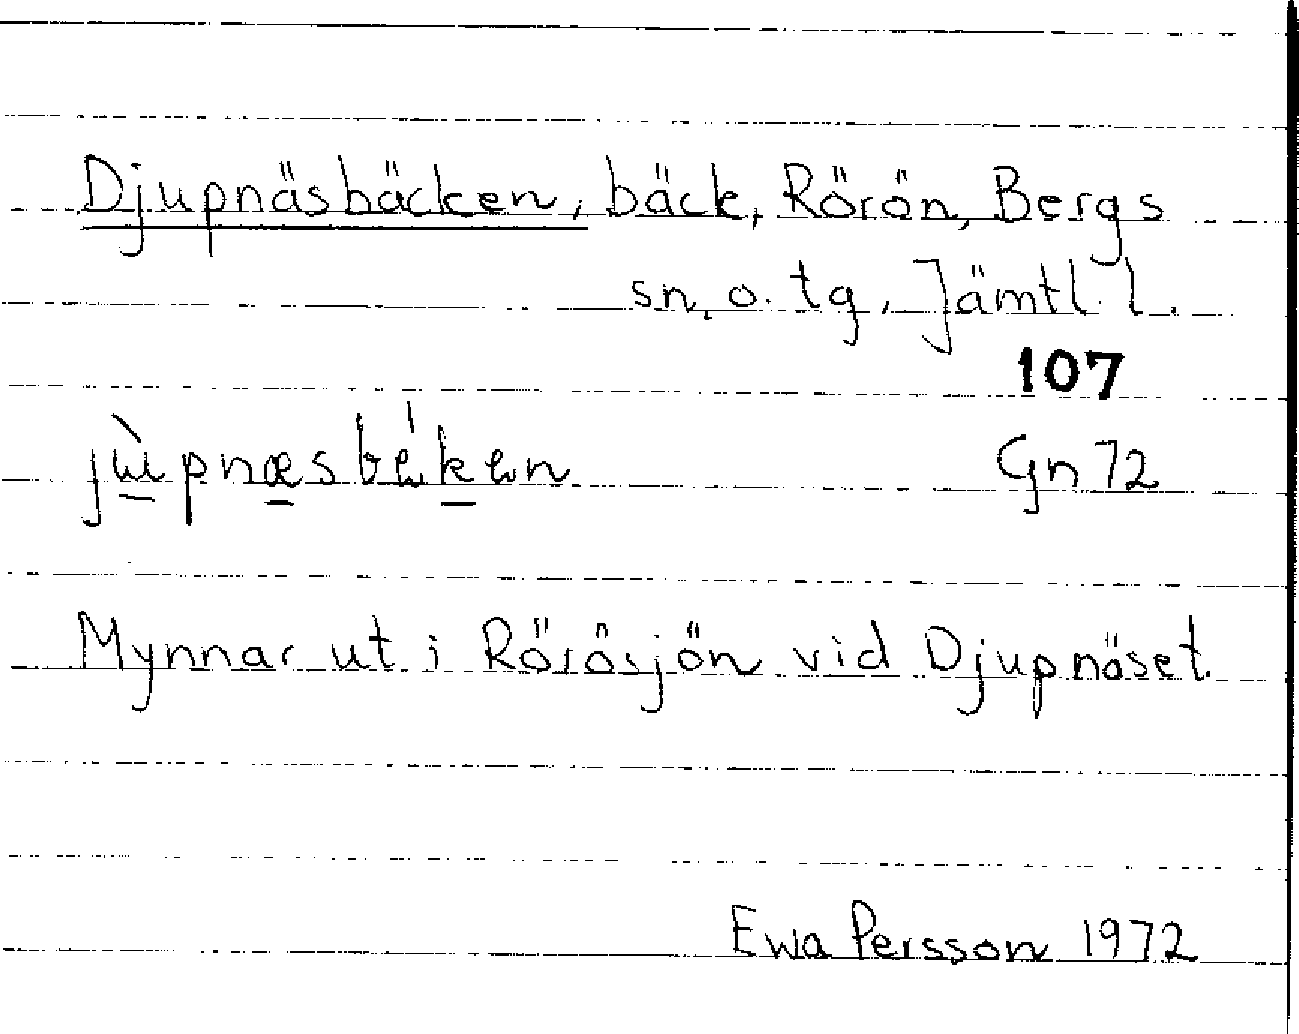 Djupnäsbäcken, bäck, Rörön, Bergs
sn. o. tg, Jämtl. l.
107
Gn 72
Mynnar ut i Rörösjön vid Djupnäset.
Ewa Persson 1972